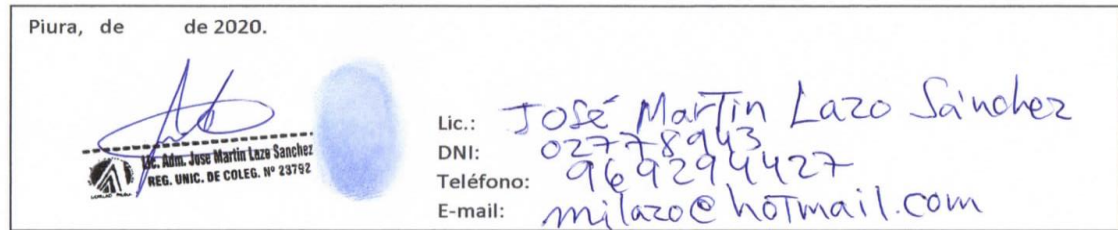 Piura, de de 2020.
Lic. Adm. Jose Martin Lazo Sanchez
REG. UNIC. DE COLEG. Nº 23792
Lic.: José Martin Lazo Sánchez
DNI: 02778943
Teléfono: 969294427
E-mail: milazo@hotmail.com